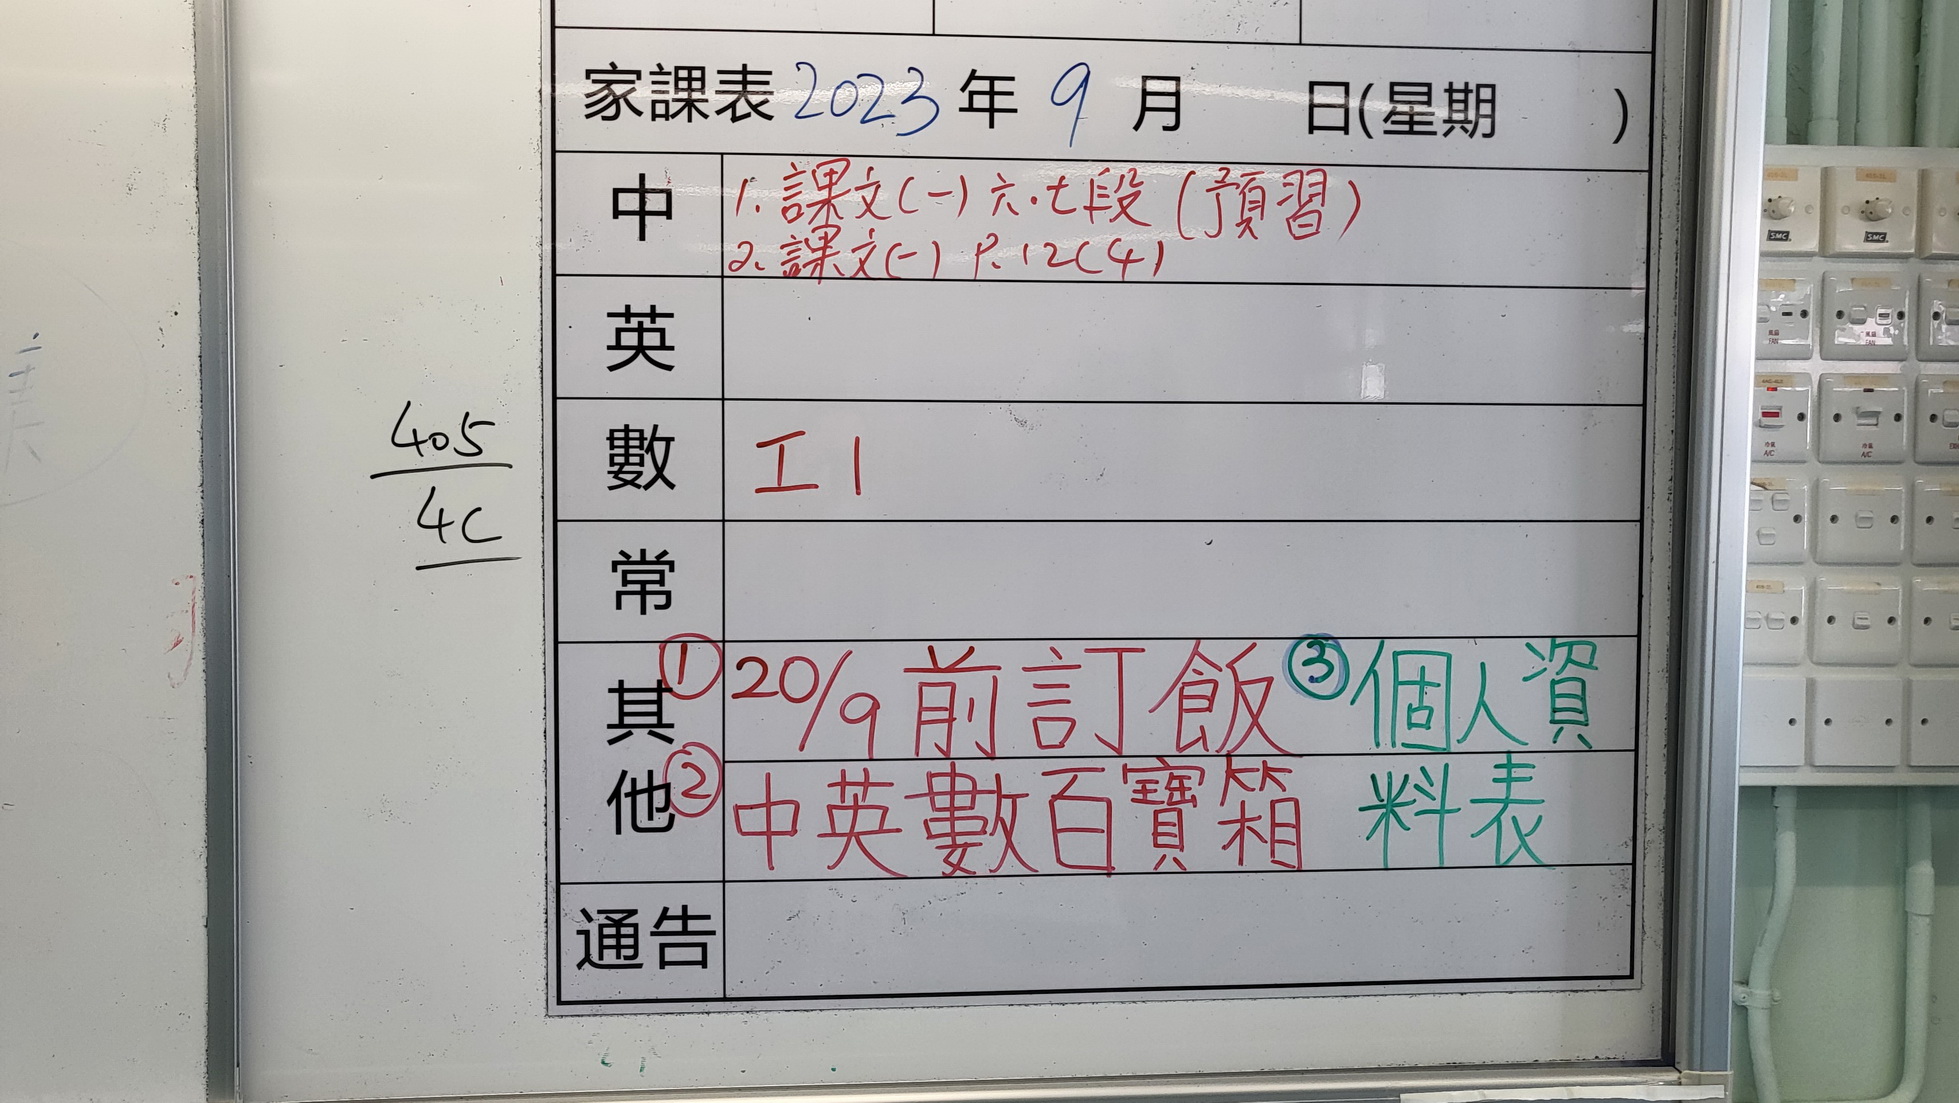 家課表 2023 年 9 月 日(星期 )
中
1. 課文(一) 六.七段 (預習)
2. 課文(一) P.12(4)
英
數
工1
常
其他
① 20/9 前訂飯
② 中英數百寶箱
③ 個人資
料表
通告
405
4C
SMC
SMC
風扇
FAN
風扇
FAN
冷氣
A/C
冷氣
A/C